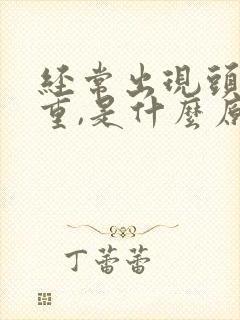 經常出現頭
重,是什麼原
丁蕾蕾